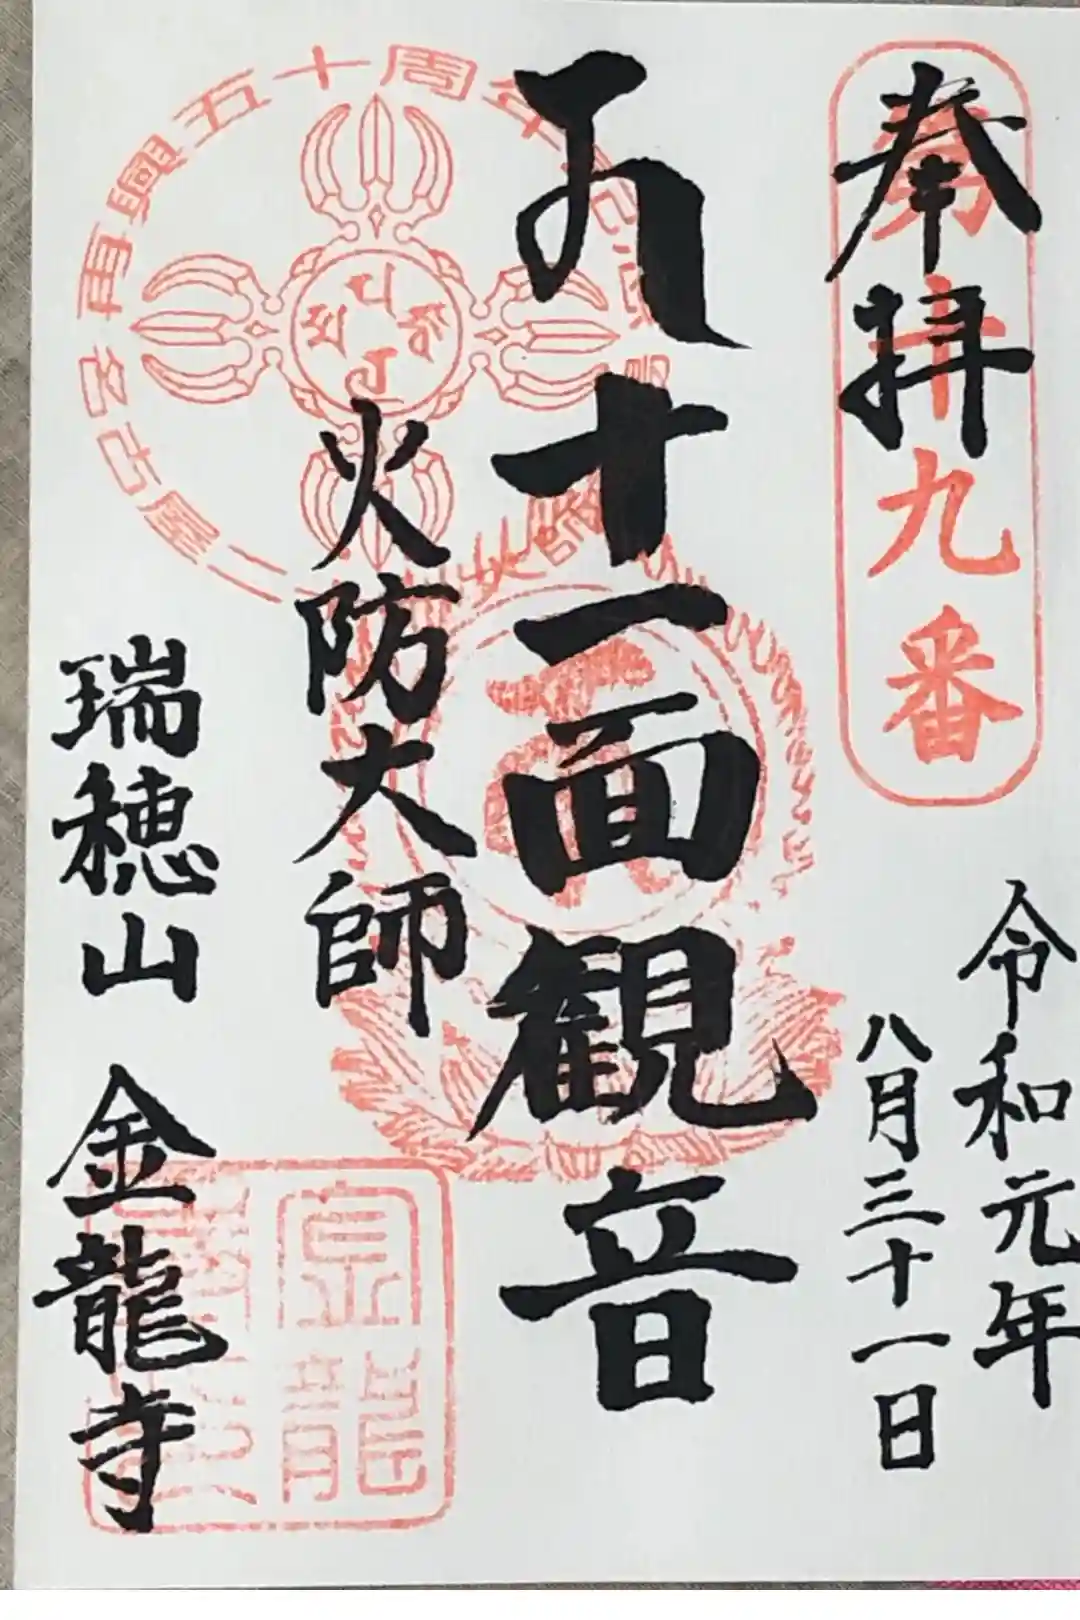 奉拝
第十九番
令和元年
八月三十一日
十一面観音
火防大師
瑞穂山 金龍寺
再興五十周年
名古屋二十一
金龍